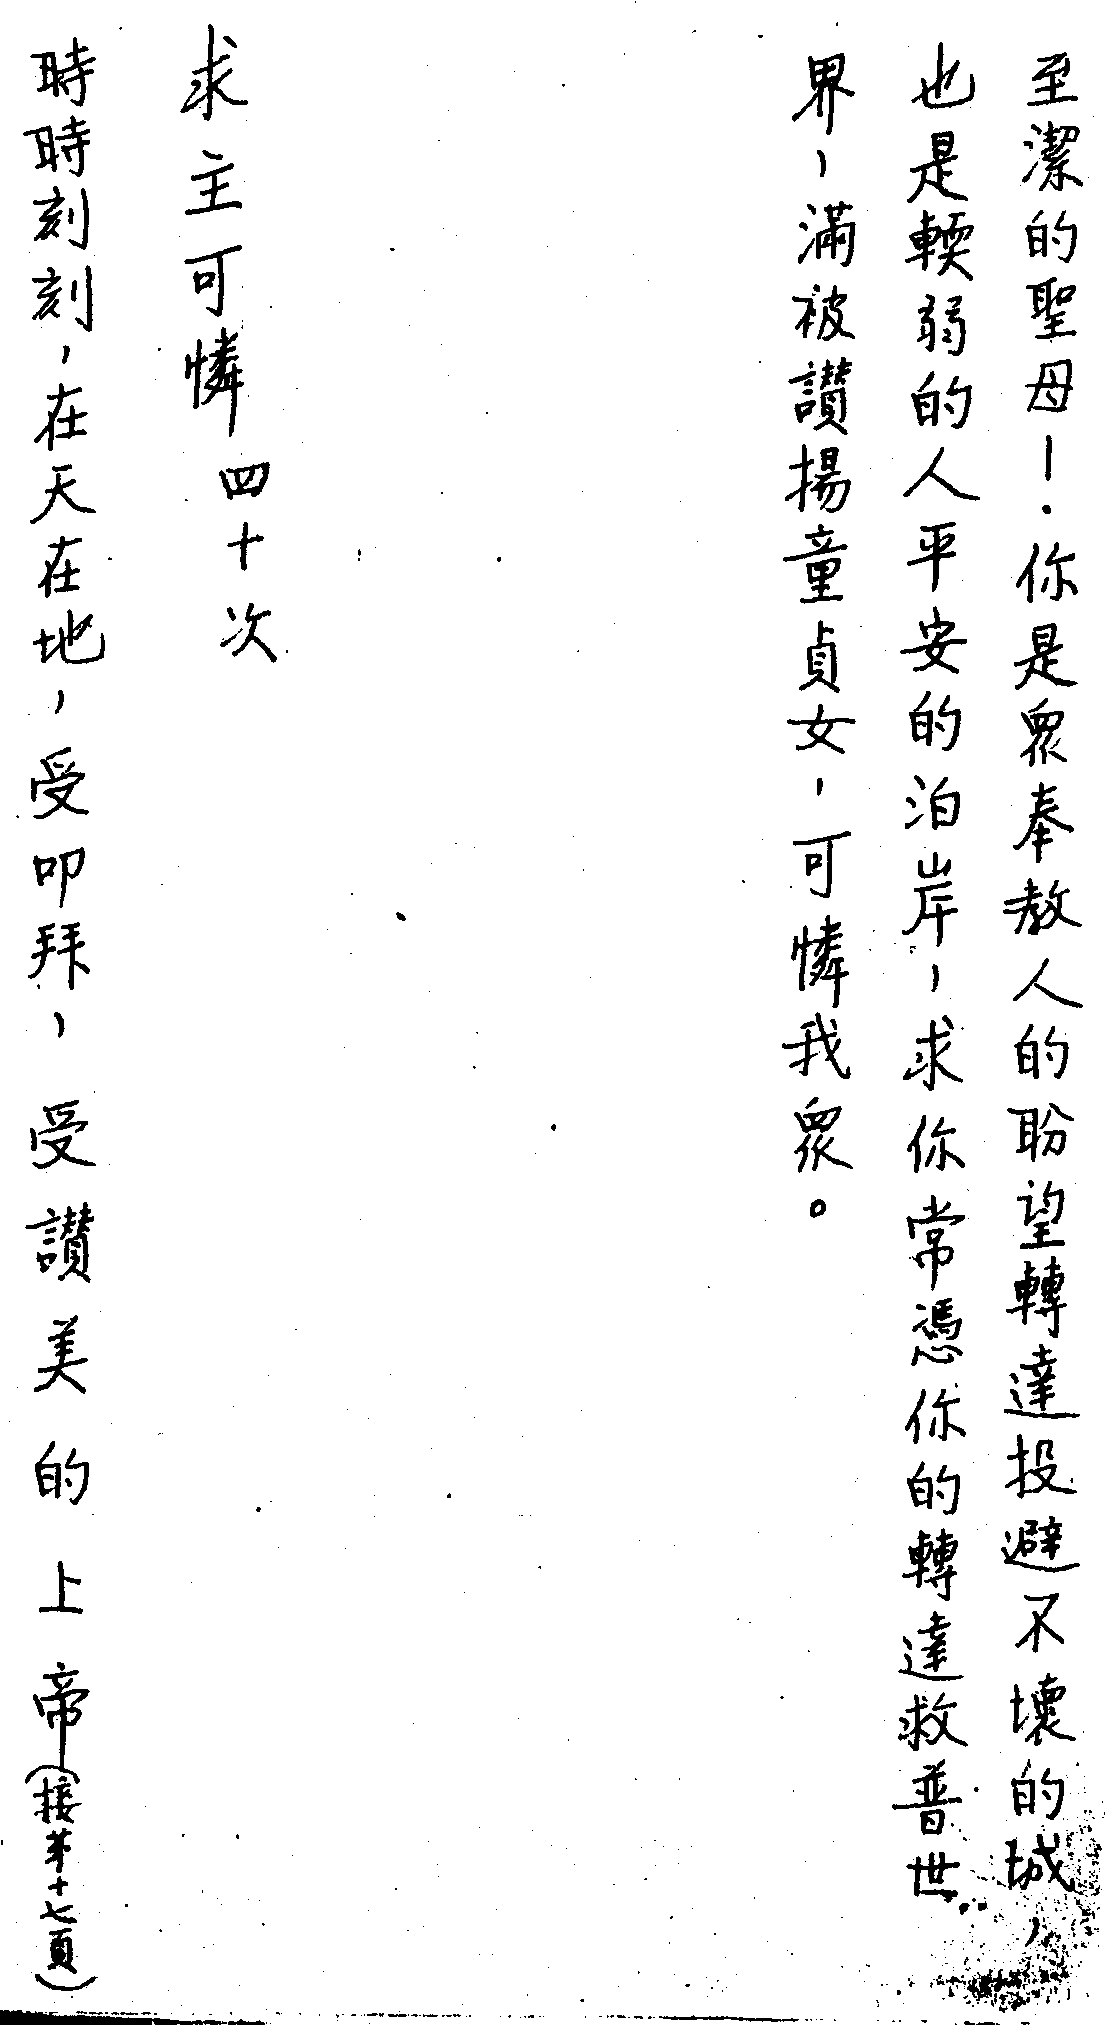 至潔的聖母！你是眾奉教人的盼望轉達投避不壞的城，
也是輭弱的人平安的泊岸，求你常憑你的轉達救普世
界，滿被讚揚童貞女，可憐我眾。
求主可憐四十次
時時刻刻，在天在地，受叩拜，受讚美的上帝（接第十七頁）